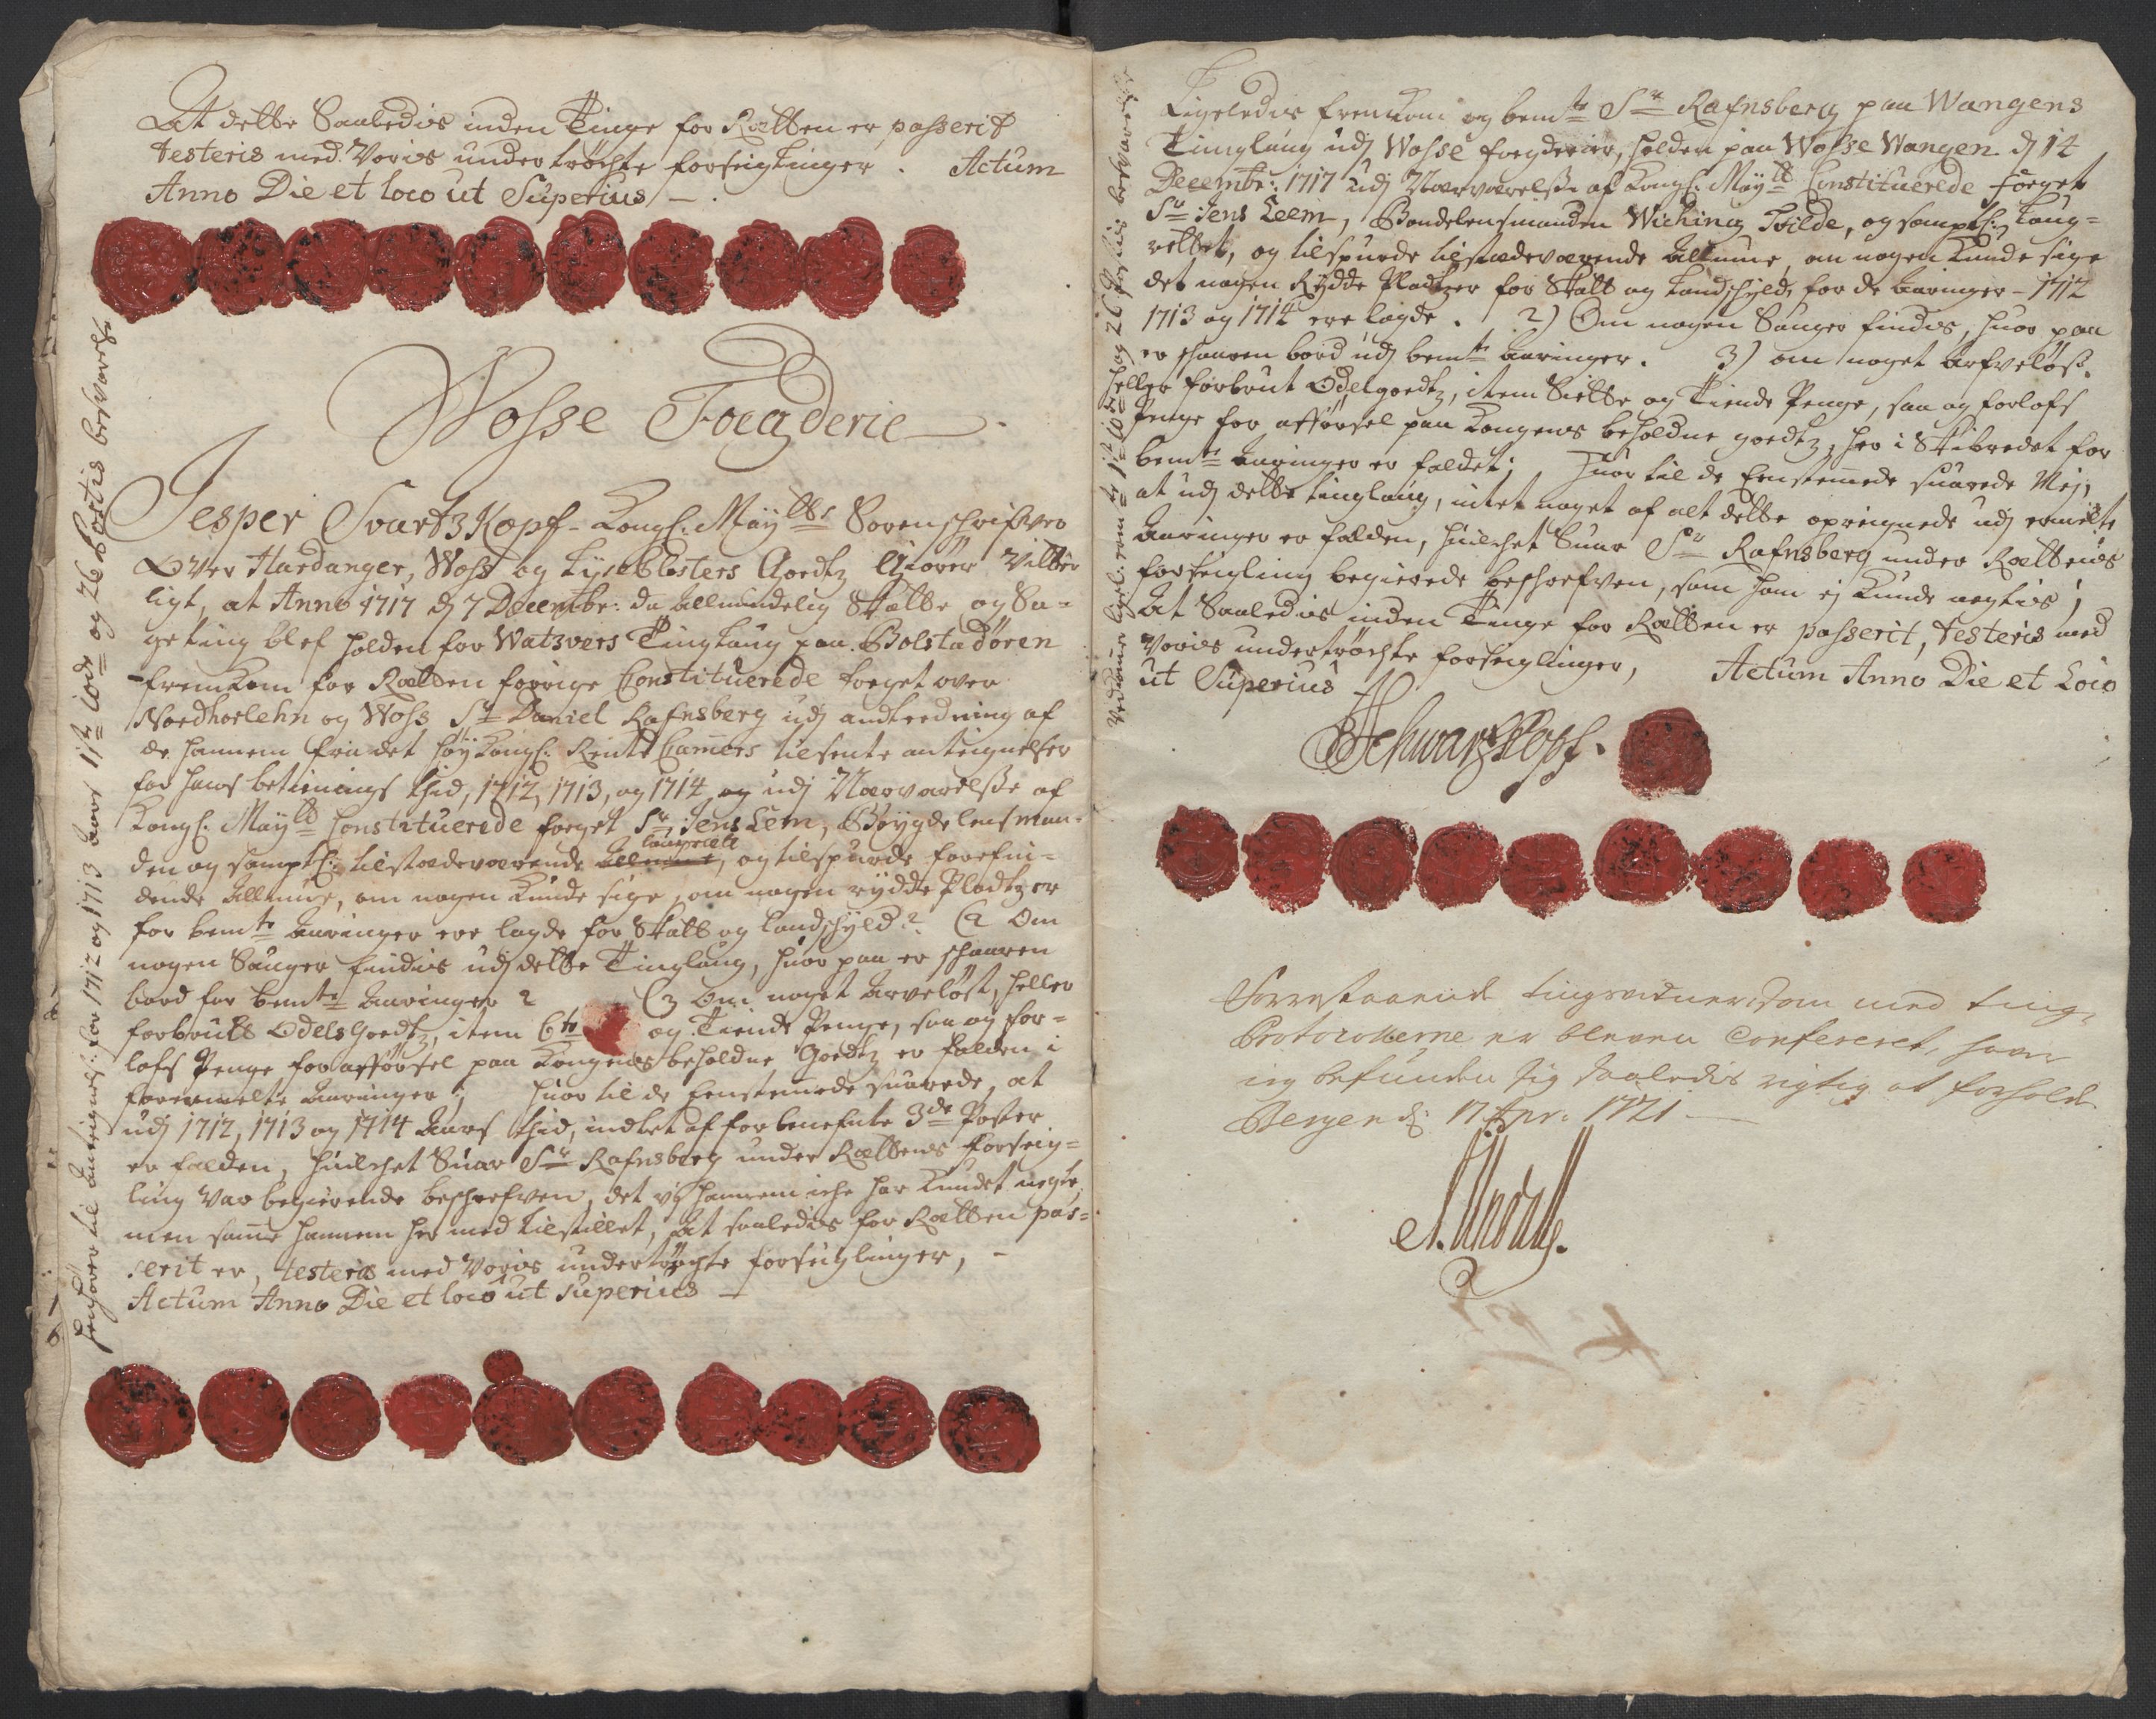 At dette Saaledis inden Tinge for Rætten er passerit
testeris med Voris undertrøchte forseiglinger. Actum
Anno Die et loco ut Superius —.
Wosse Fogderie
Jesper SvartzKopf Kongl. Mayttz Sorenschrifver
Over Hardanger, Woss og Lyseklosters Goedtz Giører Vitter
ligt, at Anno 1717 dj 7 Decembr: da Allmindelig Skatte og Sa-
geting blef holden for Watsvers Tinglaug paa Bolstadøren
fremkom for Rætten forrige Constituerede foeget over
Nordhorlehn og Woss Sr Daniel Rafnsberg udj andledning af
de hannem fra det høy Kongl. Rente Cammers tilsente antegnelser
for hans betienings tid, 1712, 1713, og 1714 og udj Nærværelsse af
Kongl. Maytts Constituerede foeget Sr Jens Leem, Bøygdelensman-
laugrett
den og samptl. tilstædeværende Allmue, og tilspurde forefin-
dende Allmue, om nogen kunde sige, om nogen rydde Pladtzer
for bemte Aaringer ere lagde for Skatt og landschyld? (2 Om
nogen Sauger findis udj dette Tinglaug, huor paa er schaaren
bord for bemte Aaringer? (3 Om noget Arveløst, heller
forbrutt Odels Goedtz, item 6te og Tiende Penge, saa og for-
lofs Penge for afførsel paa Kongens beholdne Goedtz er falden i
forermelte Aaringer; huor til de Eenstemmede suarede, at
udj 1712, 1713 og 1714 Aars tid, indtet af forbenefnte 3de Poster
er falden, huilchet Suar Sr Rafnsberg under Rættens forseig-
ling var begierende beschrefven, det vj hannem iche har kundet negte,
men samme hannem her med tilstillet, At saaledis for Rætten pas-
serit er, testeris med Voris undertrøchte forseiglinger, -
Actum Anno Die et loco ut superius —
henhører til Antegnels: for 1712 og 1713 Aars 11te 10de og 26 Postis besvarelse
Ligeledis fremkom og bemte Sr Rafnsberg paa Wangens
Tinglaug udj Wosse fogderier, holden paa Wosse Wangen dj 14
Decembr: 1717 udj Nærværelsse af Kongl. Maytts Constituerede foeget
Sr Jens Leem, Bondelensmanden Wiching Tvilde, og samptl. Laug-
rettet, og tilspurde tilstædeværende Allmue, om nogen kunde sige
det nogen Rydde Pladtzer for Skatt og landschyld for de Aaringer - 1712
1713 og 1714 ere lagde. 2) Om nogen Sauger findis, huor paa
er schaaren bord udj bemte Aaringer. 3) om noget Arfveløss.
heller forbrut Odelgoedtz, item Siette og Tiende Penge, saa og forlofs
Penge for afførsel paa Kongens beholdne goedtz, her i Skibredet for
bemte Aaringer er faldet; Huor til de Eenstemmede suarede Nej,
at udj dette tinglaug, intet noget af alt dette opregnede udj ermelte
Aaringer er falden, huilchet Suar Sr Rafnsberg under Rættens
forseigling begierede beschrefven, som ham ej kunde negtis;
At Saaledis inden Tinge for Rætten er passerit, testeris med
Voris undertrøchte forseiglinger, Actum Anno Die et Loco
ut Superius
JSchwartzkopf.
Forrestaaende tingsvidner, som med ting-
Protocollerne er bleven Confereret, haver
jeg befunden sig saaledis rigtig at forholde
Bergen dj 17 Apr: 1721 —